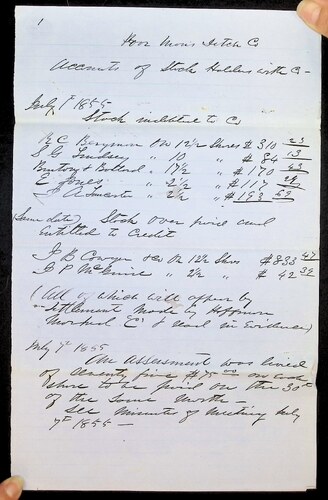 1
Poor Mans Ditch Co
Accounts of Stock Holders with Co -
July 1st 1855
Stock indebted to Co
Bergman on 12½ Shares $ 310 23
S G Lindsey " 10 " $ 84 13
" 17½ " $ 170
E Jones " 2½ " $ 117
" 2½ " $ 193
(Same date) Stock over paid and
entitled to Credit
J B on 12½ Shares $ 833 47
G P McGuire " 2½ " $ 42 39
(All of which will appear by
Settlement made by
marked "E" & read in Evidence)
July 7th 1855
An assessment was levied
of Seventy five $75 00 on each
share to be paid on the 30th
of the same month -
See Minutes of Meeting July
7th 1855 -